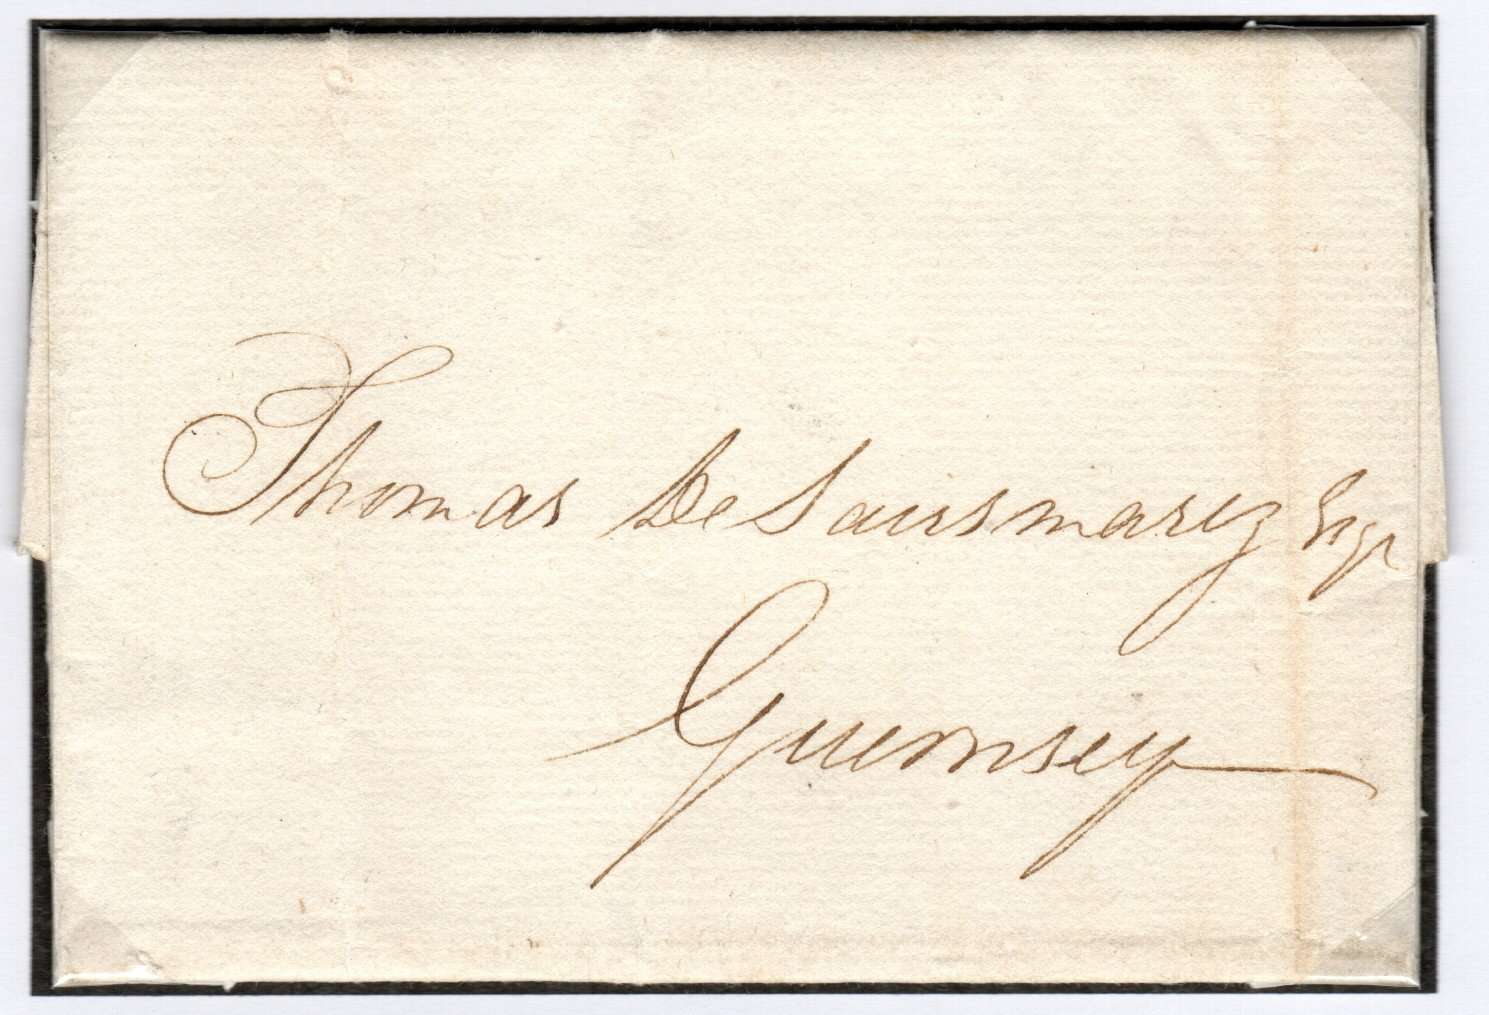 Thomas De Sausmarez Esqr
Guernsey